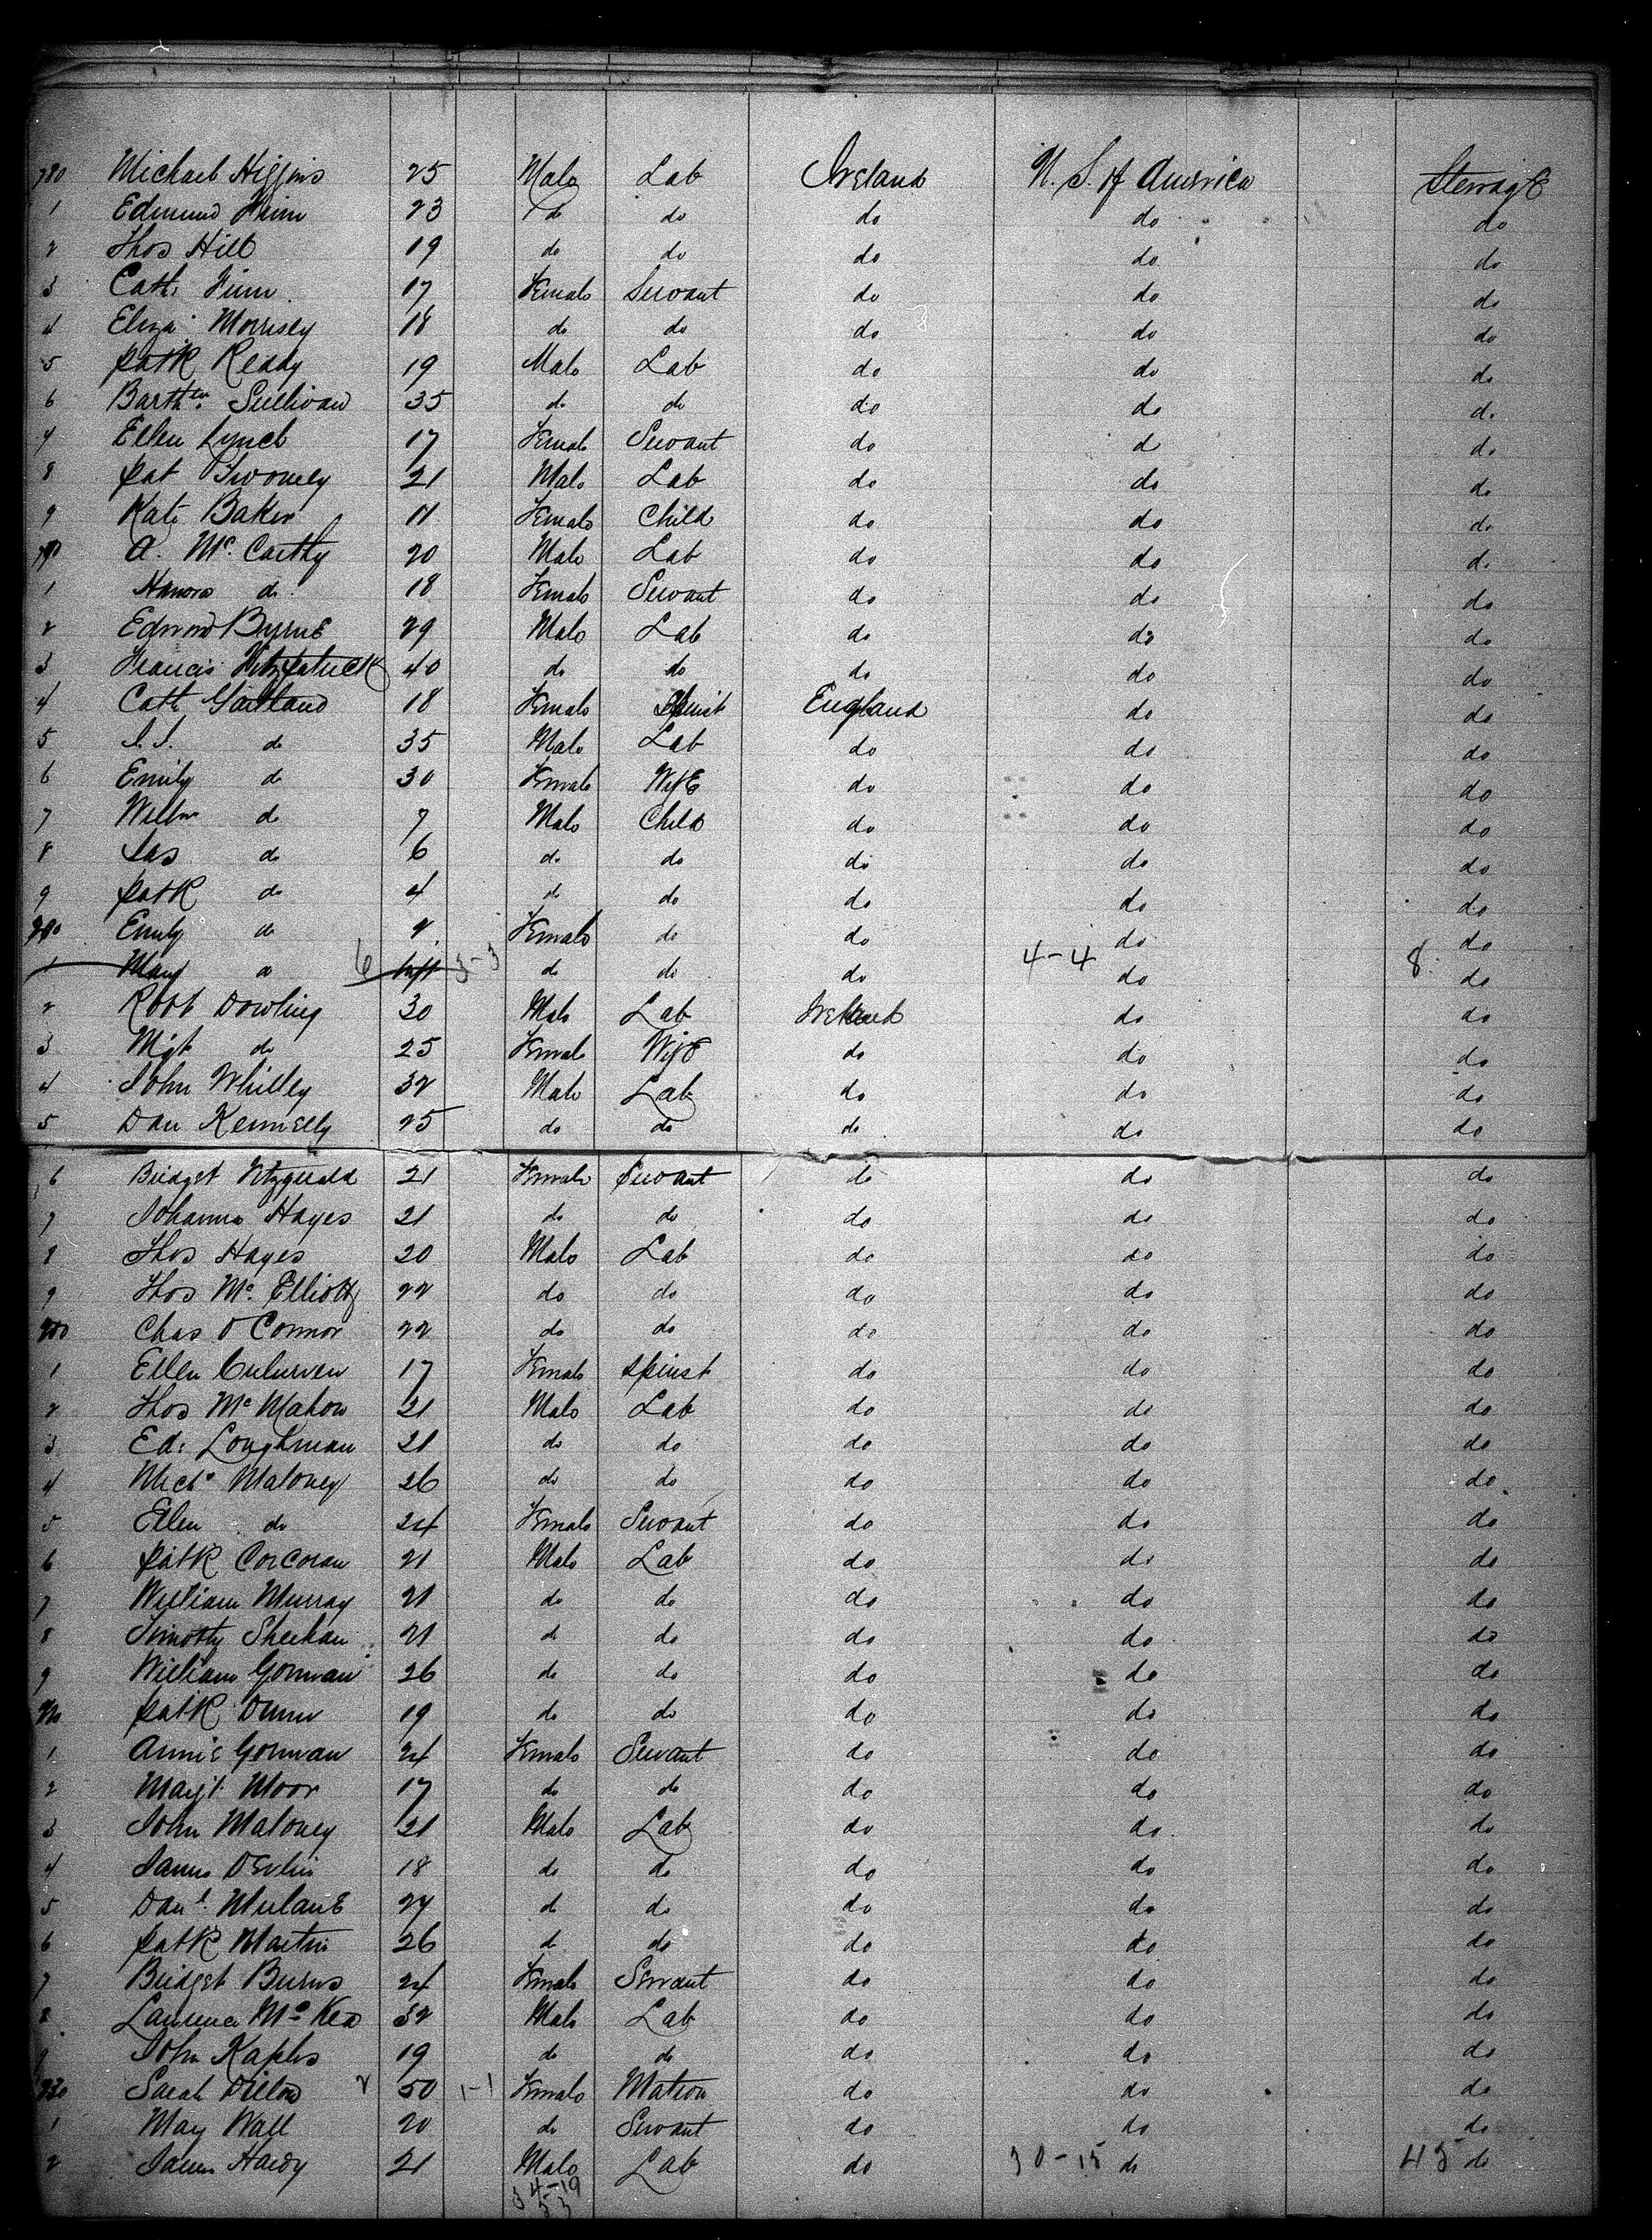 780 Michael Higgins 25 Male Lab Ireland U. S. of America Steerage
1 Edmund 23 do do do do do
2 Thos Hill 19 do do do do do
3 Cath. 17 Female Servant do do do
4 Eliza Morrisey 18 do do do do do
5 Patk Ready 19 Male Lab do do do
6 Barthw. Sullivan 35 do do do do do
7 Ellen Lynch 17 Female Servant do d do
8 Pat Twomey 21 Male Lab do do do
9 Kate Baker 11 Female Child do do do
790 A. McCarthy 20 Male Lab do do do
1 Hanora do 18 Female Servant do do do
2 Edward Byrne 29 Male Lab do do do
3 Francis Fitzpatrick 40 do do do do do
4 Cath Gartland 18 Female Spinst England do do
5 do 35 Male Lab do do do
6 Emily do 30 Female Wife do do do
7 Willm do 7 Male Child do do do
8 Jas do 6 do do do do do
9 Patk do 4 do do do do do
Emily do 2 Female do do do do
1 Mary do 6 Inft 3-3 do do do 4-4 do 8 do
2 Robt Dowling 30 Male Lab Ireland do do
3 Mgt do 25 Female Wife do do do
4 John Whilley 32 Male Lab do do do
5 Dan Kennelly 25 do do do do do
6 Bridget Fitzgerald 21 Female Servant do do do
7 Johanna Hayes 21 do do do do do
8 Thos Hayes 20 Male Lab do do do
9 Thos McElliott 22 do do do do do
Chas O Connor 22 do do do do do
1 Ellen 17 Female Spinst do do do
2 Thos McMahon 21 Male Lab do do do
3 Ed. Loughman 21 do do do do do
4 Michl Maloney 26 do do do do do
5 Ellen do 24 Female Servant do do do
6 Patk Corcoran 21 Male Lab do do do
7 William Murray 21 do do do do do
8 Timothy Sheehan 21 do do do do do
9 William Gorman 26 do do do do do
Patk Dunn 19 do do do do do
1 Annie Gorman 24 Female Servant do do do
2 Margt Moor 17 do do do do do
3 John Maloney 21 Male Lab do do do
4 James Devlin 18 do do do do do
5 Danl. Mulane 27 do do do do do
6 Patk Martin 26 d do do do do
7 Bridget Burns 24 Female Servant do do do
8 Laurence McKea 32 Male Lab do do do
9 John Kaples 19 do do do do do
Sarah Dillon 2 50 1-1 Female Matron do do do
1 May Wall 20 do Servant do do do
2 James Hardy 21 Male Lab do 30-15 do 45 do
34-19
53